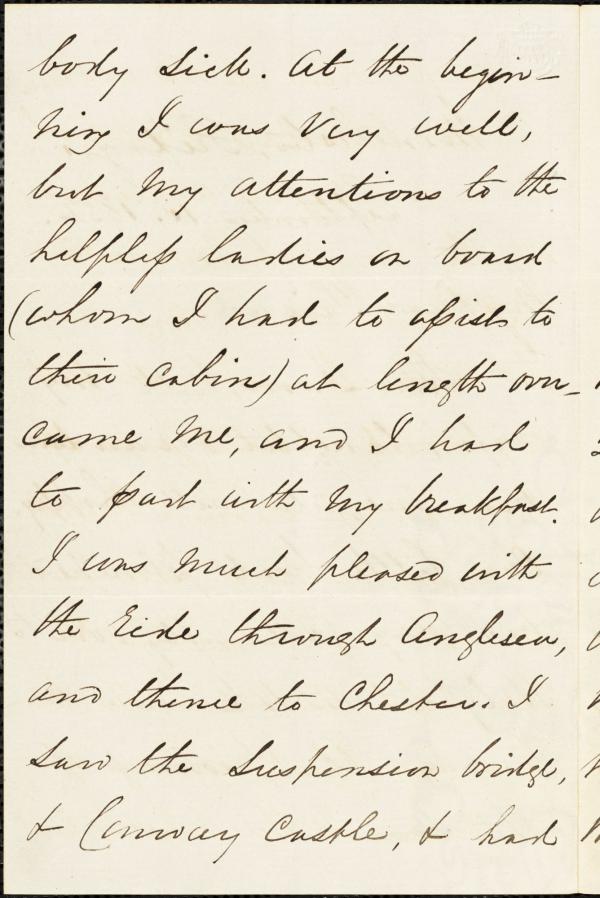 body sick. At the begin-
ning I was very well,
but my attentions to the
helpless ladies on board
(whom I had to assist to
their cabin) at length over-
came me, and I had
to part with my breakfast.
I was much pleased with
the ride through Anglesea,
and thence to Chester. I
saw the suspension bridge,
& Conway castle, & had